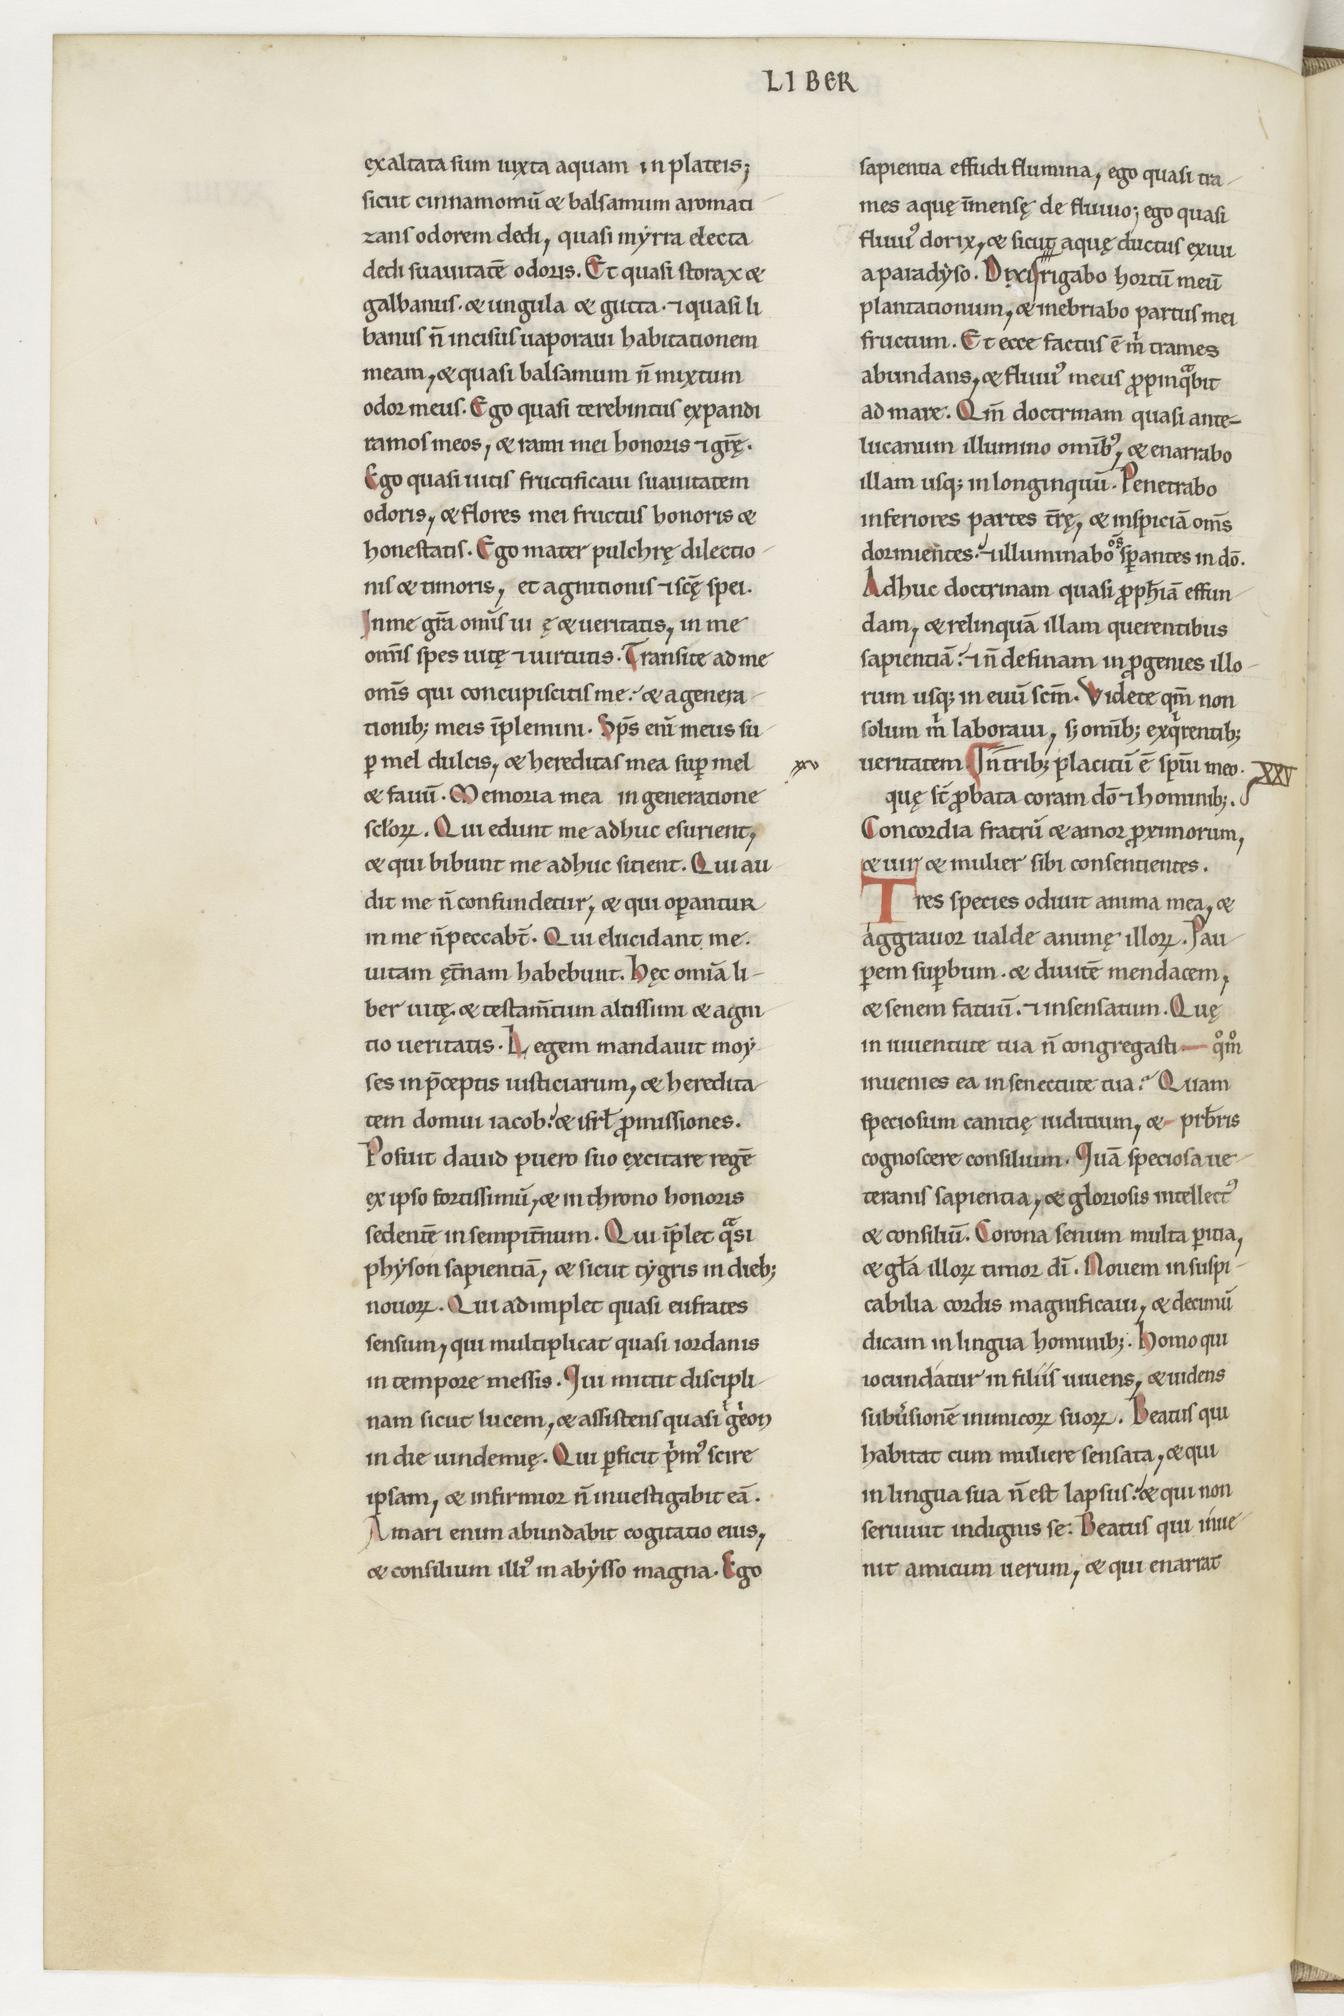 LIBER
exaltata sum iuxta aquam in plateis;
sicut cinnamomū & balsamum aromati
zans odorem dedi, quasi myrra electa
dedi suauitatē odoris. Et quasi storax &
galbanus. & ungula & gutta. ⁊ quasi li
banus n̄ incisus uaporaui habitationem
meam, & quasi balsamum n̄ mixtum
odor meus. Ego quasi terebintus expandi
ramos meos, & rami mei honoris ⁊ grę̄.
Ego quasi uitis fructificaui suauitatem
odoris, & flores mei fructus honoris &
honestatis. Ego mater pulchrę dilectio
nis & timoris, et agnitionis ⁊ scę̄ spei.
In me gr̄a om̄is ui ę & ueritatis, in me
om̄is spes uitę ⁊ uirtutis. Transite ad me
om̄s qui concupiscitis me: & a genera
tionib; meis īplemini. Sp̄s enī meus su
ꝑ mel dulcis, & hereditas mea suꝑ mel
& fauū. Memoria mea in generatione
scl̄oꝝ. Qui edunt me adhuc esurient,
& qui bibunt me adhuc sitient. Qui au
dit me n̄ confundetur, & qui oꝑantur
in me n̄ peccabt̄. Qui elucidant me.
uitam ęt̄nam habebunt. Hęc omīa li
ber uitę. & testam̄tum altissimi & agni
tio ueritatis. Legem mandauit moy
ses in p̄ceptis iusticiarum, & heredita
tem domui iacob: & isrl̄ ꝓmissiones.
Posuit dauid puero suo excitare regē
ex ipso fortissimū, & in throno honoris
sedentē in sempit̄num. Qui īplet qᵃsi
physon sapientiā, & sicut tygris in dieb;
nouoꝝ. Qui adimplet quasi eufrates
sensum, qui multiplicat quasi iordanis
in tempore messis. Qui mittit discipli
nam sicut lucem, & assistens quasi geon
in die uindemię. Qui ꝑficit pⁱmꝰ scire
ipsam, & infirmior n̄ inuestigabit eā.
A mari enim abundabit cogitatio eius,
& consilium illiꝰ in abysso magna. Ego
sapientia effudi flumina, ego quasi tra
mes aquę īmensę de fluuio; ego quasi
fluuiꝰ dorix, & sicut aquę ductus exiui
a paradyso. Dixi rigabo hortū meū
plantationum, & inebriabo partus mei
fructum. Et ecce factus ē mⁱ trames
abundans, & fluuiꝰ meus ꝓpinqᵃbit
ad mare. Qm̄ doctrinam quasi ante-
lucanum illumino omībꝰ, & enarrabo
illam usq; in longinquū. Penetrabo
inferiores partes t̄rę, & inspiciā om̄s
dormientes: ⁊ illuminabo o͞s sꝑantes in dō.
Adhuc doctrinam quasi ꝓph̄iā effun
dam, & relinquā illam querentibus
sapientiā: ⁊ n̄ definam in ꝓgenies illo
rum usq; in euū scm̄. Videte qm̄ non
solum mⁱ laboraui, s; omīb; exqⁱrentib;
xxv
ueritatem. In trib; placitū ē spīui meo.
XXV
quę st̄ ꝓbata coram dō ⁊ hominib;.
Concordia fratrū & amor ꝓximorum,
& uir & mulier sibi consentientes.
Tres species odiuit anima mea, &
aggrauor ualde animę illoꝝ. Pau
ꝑem suꝑbum. & diuitē mendacem,
& senem fatuū. ⁊ insensatum. Quę
in iuuentute tua n̄ congregasti — qͦmͦ
inuenies ea in senectute tua? Quam
speciosum canitię iuditium, & prb̄ris
cognoscere consilium. Quā speciosa ue
teranis sapientia, & gloriosis intellectꝰ
& consiliū. Corona senum multa ꝑitia,
& gl̄a illoꝝ timor dī. Nouem insuspi
cabilia cordis magnificaui, & decimū
dicam in lingua hominib;. Homo qui
iocundatur in filiis uiuens, & uidens
subūsionē inimicoꝝ suoꝝ. Beatus qui
habitat cum muliere sensata, & qui
in lingua sua n̄ est lapsus: & qui non
seruiuit indignis se: Beatus qui inue
nit amicum uerum, & qui enarrat